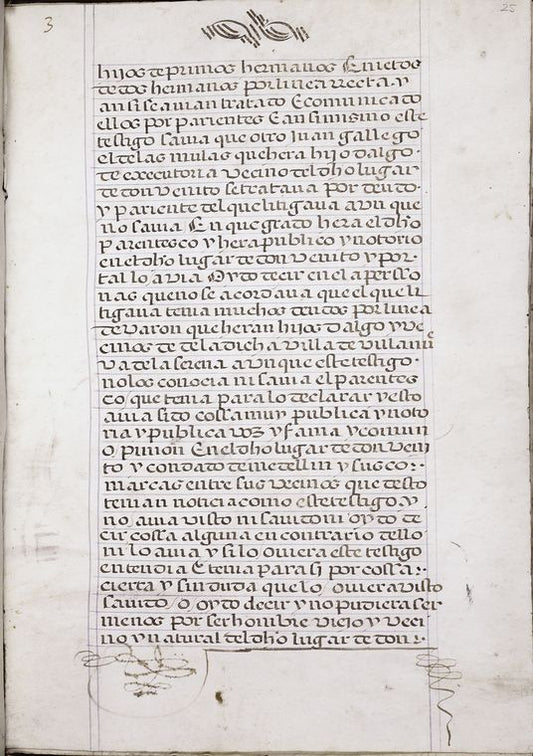 3
25
hijos de primos hermanos E nietos
de dos hermanos por linea rrecta. y
ansi se auian tratado E comunicado
ellos por parientes E ansimismo este
testigo sauia que otro Juan gallego
el de las mulas que hera hijo dalgo.
de executoria vecino del dho lugar
de don venito se trataua por deudo.
y pariente del que litigaua avn que
no sauia En que grado hera el dho
parentesco y hera publico y notorio
en el dho lugar de don venito y por.
tal lo avia Oydo decir en el aperssO
nas que no se acordaua que el que li
tigaua tenia muchos deudos por linea
de varon que heran hijos dalgo y ve
cinos de de la dicha villa de villanue
va de la serena avnque este testigo.
no los conocia ni sauia el parentes
co que tenia para lo declarar y esto
auia sido cossa muy publica y noto
ria y publica voz y fama y comun
Opinion En el dho lugar de don veni
to y condado de medellin y sus co:.
marcas entre sus vecinos que desto
tenian noticia como este testigo y
no auia visto ni sauido ni oydo de
cir cossa alguna en contrario dello
ni lo auia y si lo ouiera este testigo
entendia E tenia para si por cossa:.
cierta y sin duda que lo ouiera visto
sauido, O oydo decir y no pudiera ser
menos por ser hombre viejo y veci
no y natural del dho lugar de don:.